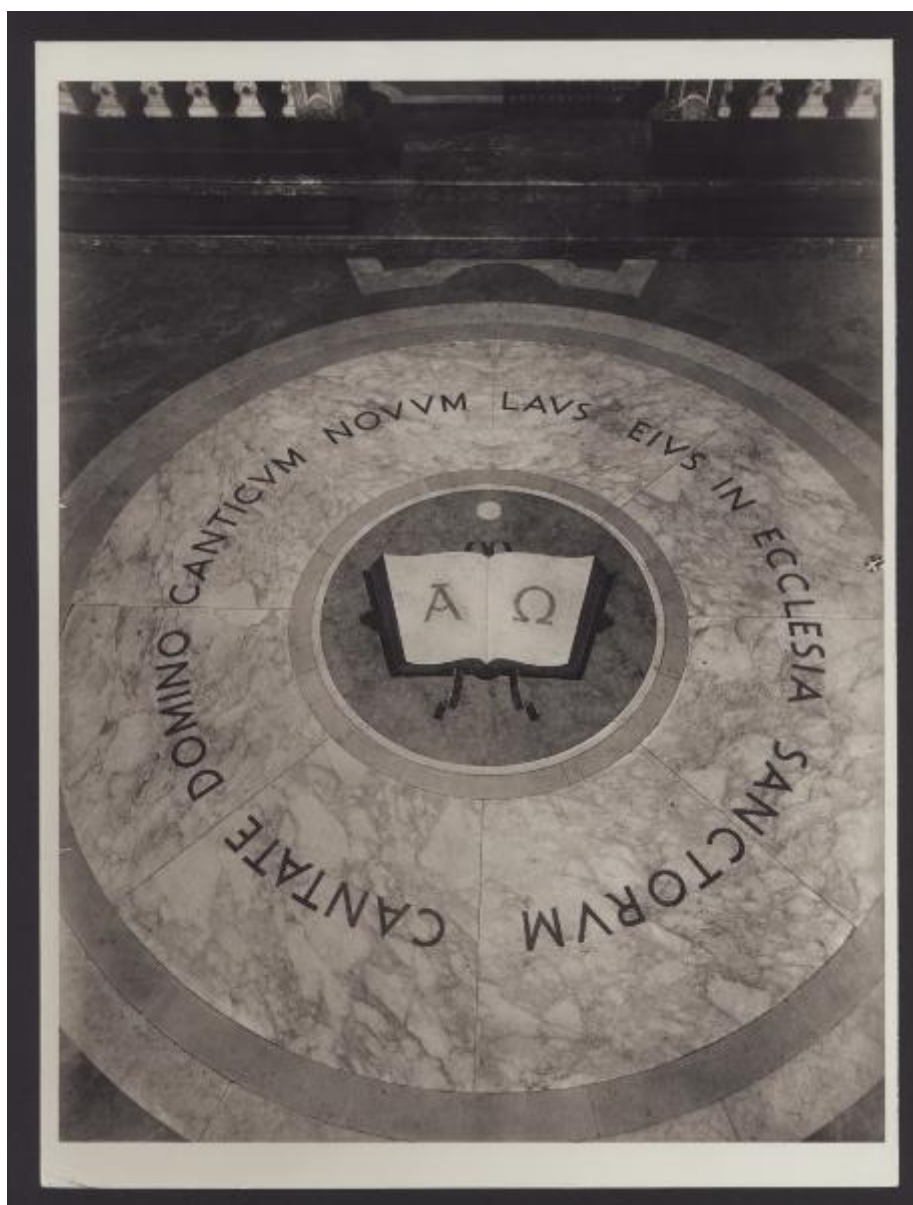 CANTATE DOMINO CANTICVM NOVVM LAVS EIVS IN ECCLESIA SANCTORVM
Α Ω